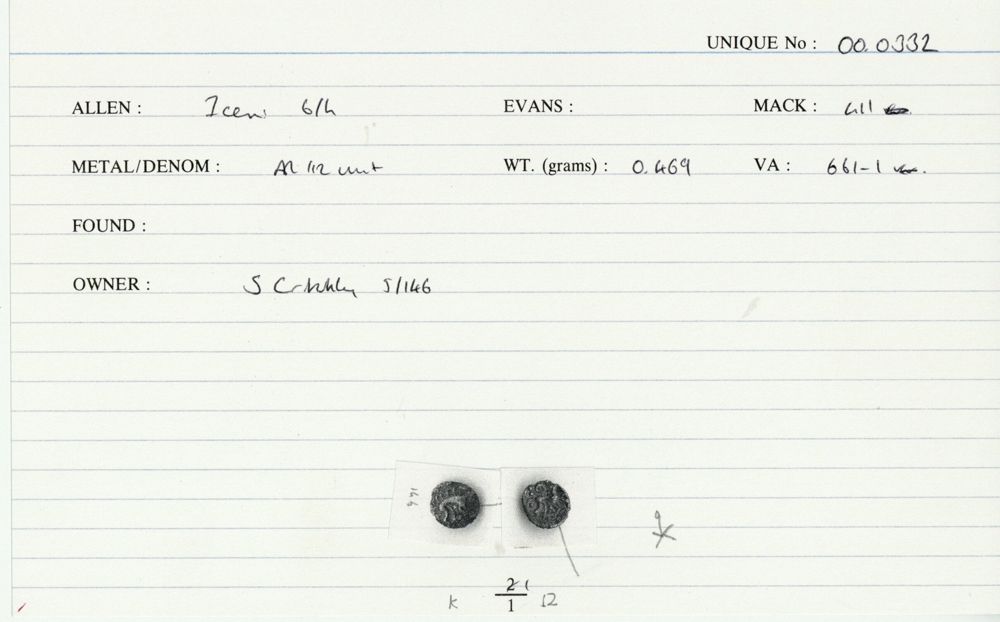 UNIQUE No : 00.0332
ALLEN : Iceni 6/h EVANS : MACK : 411
METAL/DENOM : AR 1/2 unit WT. (grams) : 0.469 VA : 661-1
FOUND :
OWNER : S 5/146
146
21
K 1 12